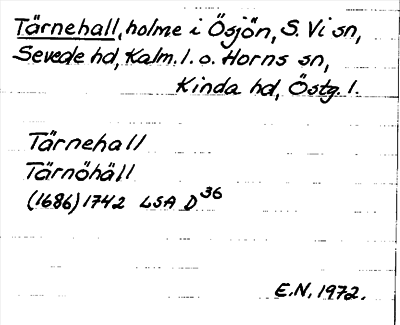 Tärnehall, holme i Ösjön, S. Vi sn,
Sevede hd, Kalm. l. o. Horns sn,
Kinda hd, Östg. l.
Tärnehall
Tärnöhäll
(1686) 1742 LSA D36
E.N. 1972.